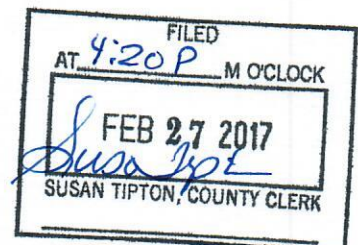 FILED
AT 4:20 P M O'CLOCK
FEB 27 2017
Susan Tipton
SUSAN TIPTON, COUNTY CLERK